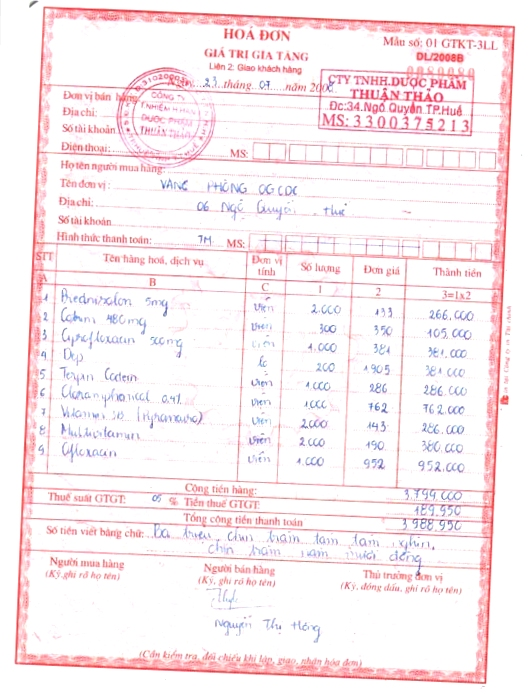 HOÁ ĐƠN
GIÁ TRỊ GIA TĂNG
Liên 2: Giao khách hàng
Mẫu số: 01 GTKT-3LL
DL/2008B
0080080
Ngày 23 tháng 07 năm 2008
CTY TNHH.DƯỢC PHẨM
THUẬN THẢO
Đc:34.Ngô Quyền TP.Huế
MS: 3300375213
CÔNG TY
DƯỢC PHẨM
THUẬN THẢO
Đơn vị bán hàng
Địa chỉ:
Số tài khoản
Điện thoại: MS:
Họ tên người mua hàng
Tên đơn vị: PHÒNG
Địa chỉ: 06 Ngô Quyền, Huế
Số tài khoản
Hình thức thanh toán: TM MS:
STT Tên hàng hoá, dịch vụ Đơn vị tính Số lượng Đơn giá Thành tiền
A B C 1 2 3=1x2
1 Prednisolon 5mg viên 2.000 133 266.000
2 480mg viên 300 350 105.000
3 Ciprofloxacin 500mg viên 1.000 381 381.000
4 Dep lọ 200 1905 381.000
5 Terpin Codein viên 1.000 286 286.000
6 0,4% viên 1.000 762 762.000
7 Vitamin viên 2.000 143 286.000
8 Multivitamin viên 2.000 190 380.000
9 Ofloxacin viên 1.000 952 952.000
Cộng tiền hàng: 3.799.000
Thuế suất GTGT: 05 % Tiền thuế GTGT: 189.950
Tổng cộng tiền thanh toán 3 988.950
Số tiền viết bằng chữ: Ba triệu, chín trăm tám tám nghìn,
chín trăm năm mươi đồng
Người mua hàng Người bán hàng Thủ trưởng đơn vị
(Ký,ghi rõ họ tên) (Ký, ghi rõ họ tên) (Ký, đóng dấu, ghi rõ họ tên)
Nguyễn Thị Hồng
(Cần kiểm tra, đối chiếu khi lập, giao, nhận hóa đơn)